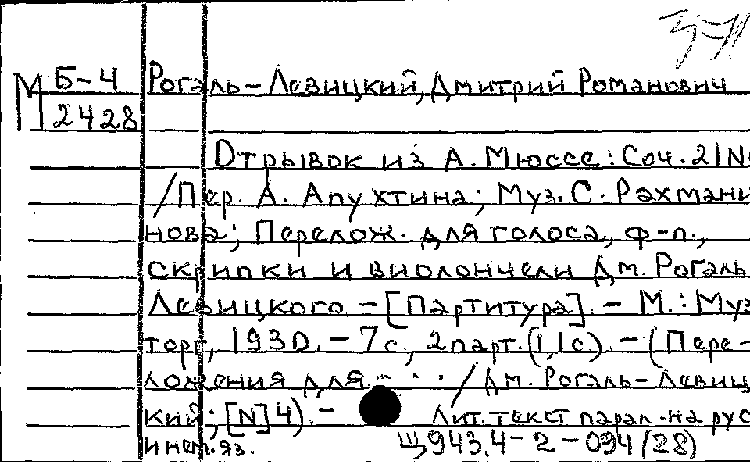 З-71
М Б-4 Рогаль-Левицкий, Дмитрий Романович
2428
Отрывок из А. Мюссе: Соч. 21 N
/Пер. А. Апухтина; Муз. С. Рахмани
нова; Перелож. для голоса, ф-п.,
скрипки и виолончели Дм. Рогаль
Левицкого. - [Партитура]. - М.: Муз
торг, 1930. - 7 с, 2 парт. (1,1 с). - (Пере-
ложения для . . . / Дм. Рогаль-Левиц
кий; [N] 4). - Лит. текст парал. на рус
и нем. яз. Щ943.4-2-094 (28)